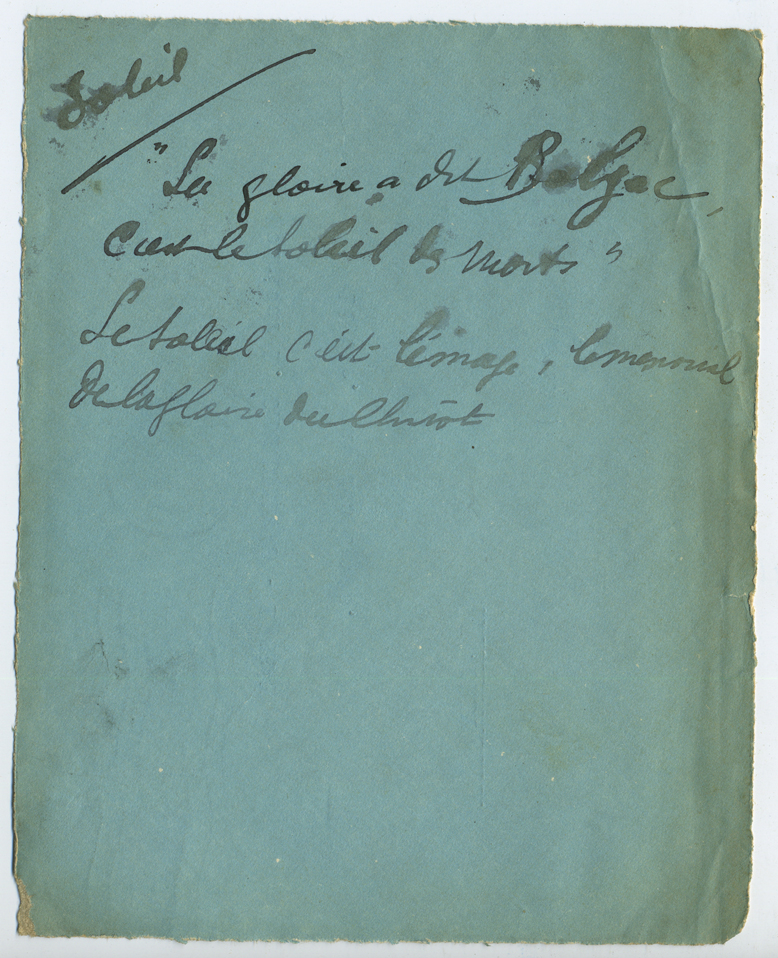 Soleil
"La gloire a dit Balzac,
c'est le Soleil des Morts"
Le Soleil c'est l'image,
de la gloire du Christ